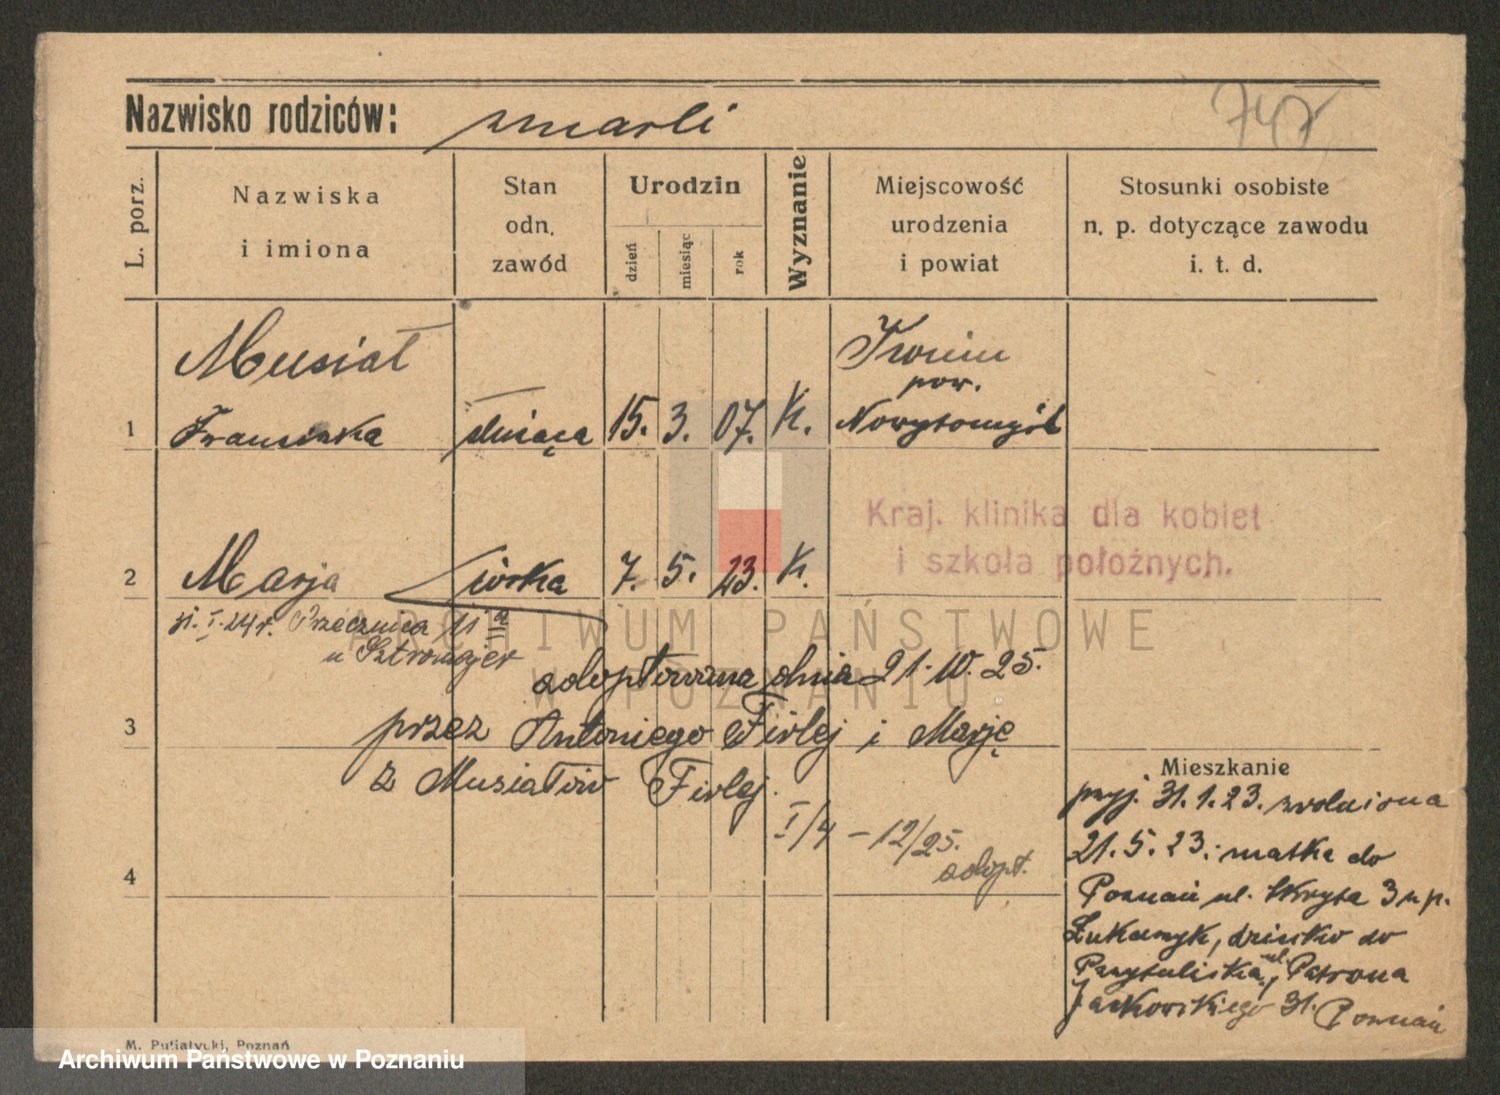 Nazwisko rodziców: zmarli
747
L. porz.
Nazwiska
i imiona
Stan
odn.
zawód
Urodzin
dzień
miesiąc
rok
Wyznanie
Miejscowość
urodzenia
i powiat
Stosunki osobiste
n. p. dotyczące zawodu
i. t. d.
Musiał
1 Franciszka służąca 15. 3. 07. K.
pow.
Nowytomyśl
Kraj. klinika dla kobiet
i szkoła położnych.
2 Marja córka 7. 5. 23. K.
I. 24 r. Przecznica 11 IIa
u Sztromajer
adoptowana dnia 21. IV. 25.
3 przez Antoniego Firlej i Marję
z Musiałów Firlej.
I/4 – 12/25.
adopt.
4
Mieszkanie
przyj. 31.1.23. zwolniona
21.5.23. matka do
Poznań ul. Skryta 3 u p.
Łukaszyk, dziecko do
Przytuliska, ul. Patrona
Jackowskiego 31. Poznań
M. Putiatycki, Poznań
ARCHIWUM PAŃSTWOWE
W POZNANIU
Archiwum Państwowe w Poznaniu